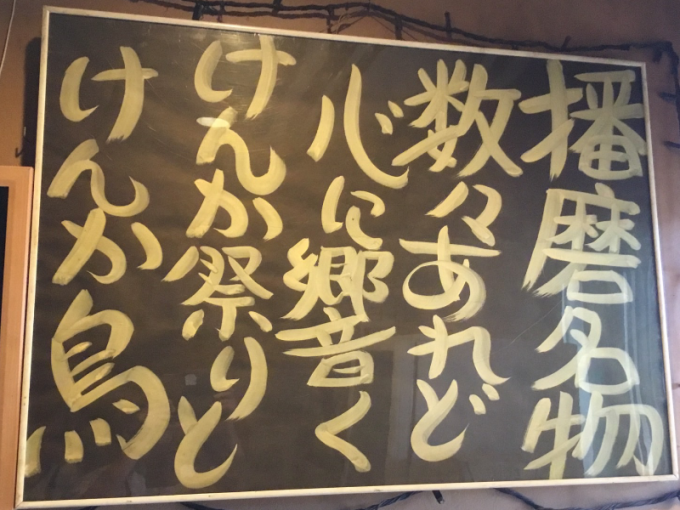 播磨名物
数々あれど
心に響く
けんか祭りと
けんか鳥